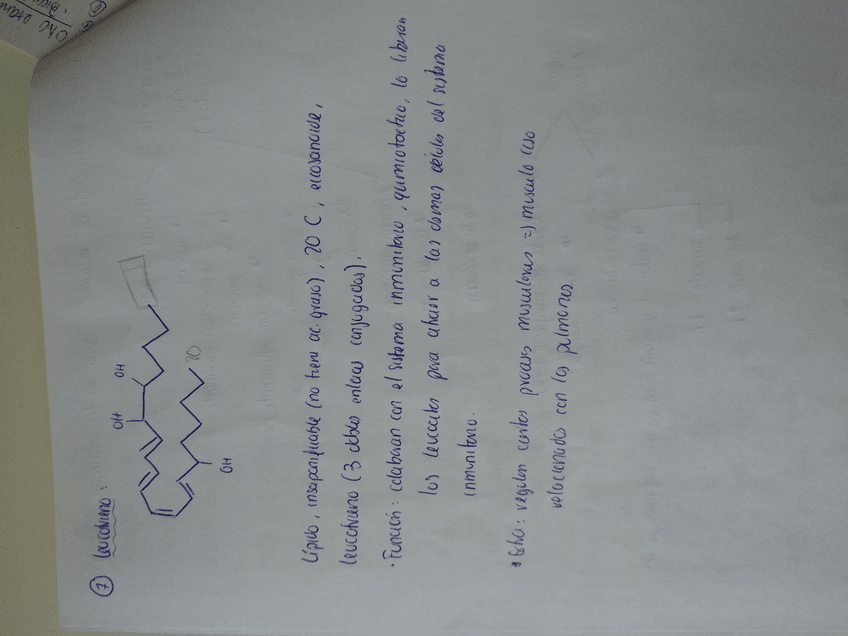 ⑦ Leucotrieno:
OH
OH
OH
20
Lípido, insaponificable (no tiene ac. graso), 20 C, eicosanoide,
leucotrieno (3 dobles enlaces conjugados).
· Función: colaboran con el sistema inmunitario, quimiotactico, lo liberan
los leucocitos para atraer a las demas células del sistema
inmunitario.
regulan ciertos procesos musculares => musculo liso
relacionados con los pulmones.